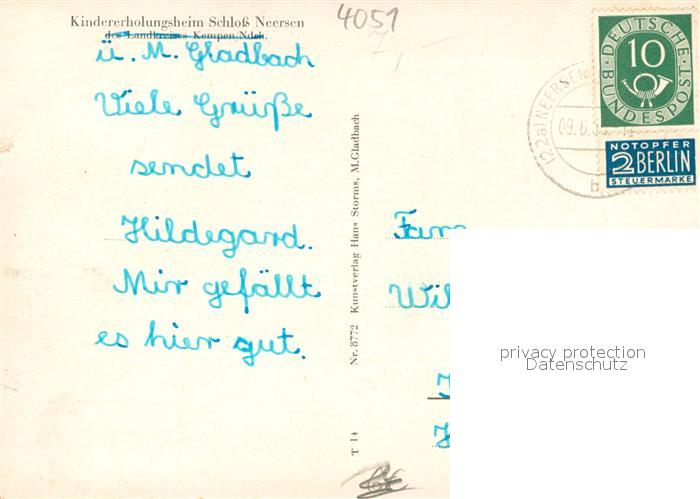 Kindererholungsheim Schloß Neersen
des Landkreises Kempen Ndrh.
ü. M. Gladbach
Viele Grüße
sendet
Hildegard.
Mir gefällt
es hier gut.
Nr. 8772 Kunstverlag Hans Storms, M.Gladbach
T 14
4051
DEUTSCHE BUNDESPOST
10
(22a) NEERSEN
09.6.5
b
NOTOPFER
2 BERLIN
STEUERMARKE
Fam
Wil
privacy protection
Datenschutz